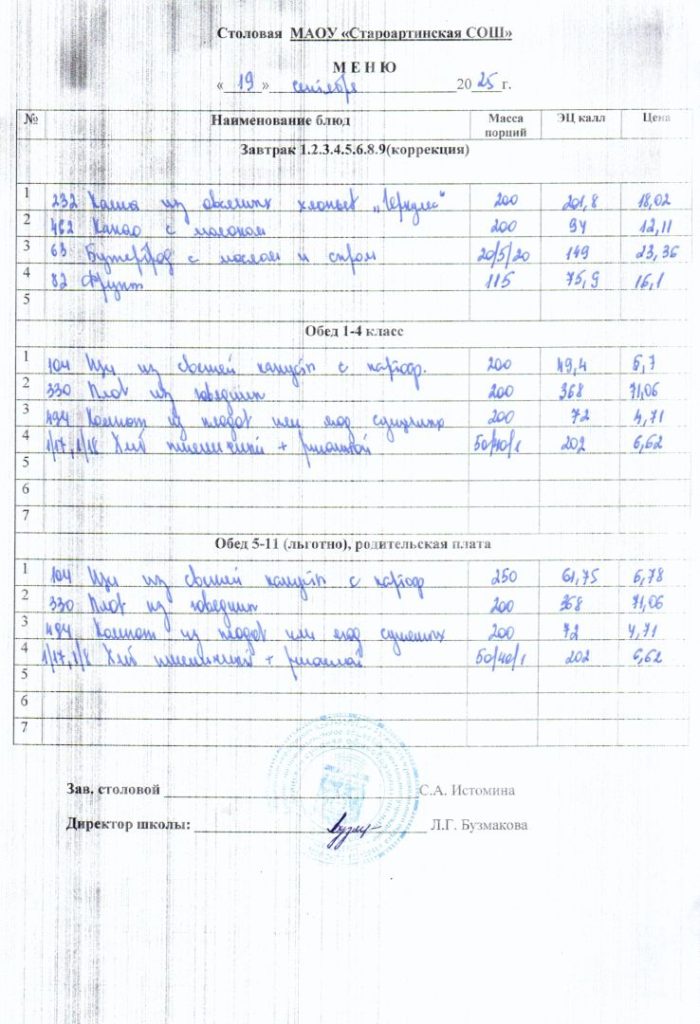 Столовая МАОУ «Староартинская СОШ»
М Е Н Ю
« 19 » сентября 2025 г.
№ Наименование блюд Масса порций ЭЦ калл Цена
Завтрак 1.2.3.4.5.6.8.9(коррекция)
1 232 Каша из овсяных хлопьев „Геркулес" 200 201,8 18,02
2 462 Какао с молоком 200 94 12,11
3 63 Бутерброд с маслом и сыром 20/5/20 149 23,36
4 82 Фрукт 115 75,9 16,1
5
Обед 1-4 класс
1 104 Щи из свежей капусты с картоф. 200 49,4 5,7
2 330 Плов из говядины 200 368 71,06
3 494 Компот из плодов или ягод сушеных 200 72 4,71
4 1/17, 1/18 Хлеб пшеничный + ржаной 50/40/1 202 6,62
5
6
7
Обед 5-11 (льготно), родительская плата
1 104 Щи из свежей капусты с картоф 250 61,75 6,78
2 330 Плов из говядины 200 368 71,06
3 494 Компот из плодов или ягод сушеных 200 72 4,71
4 1/17, 1/8 Хлеб пшеничный + ржаной 50/40/1 202 6,62
5
6
7
Зав. столовой С.А. Истомина
Директор школы: Л.Г. Бузмакова